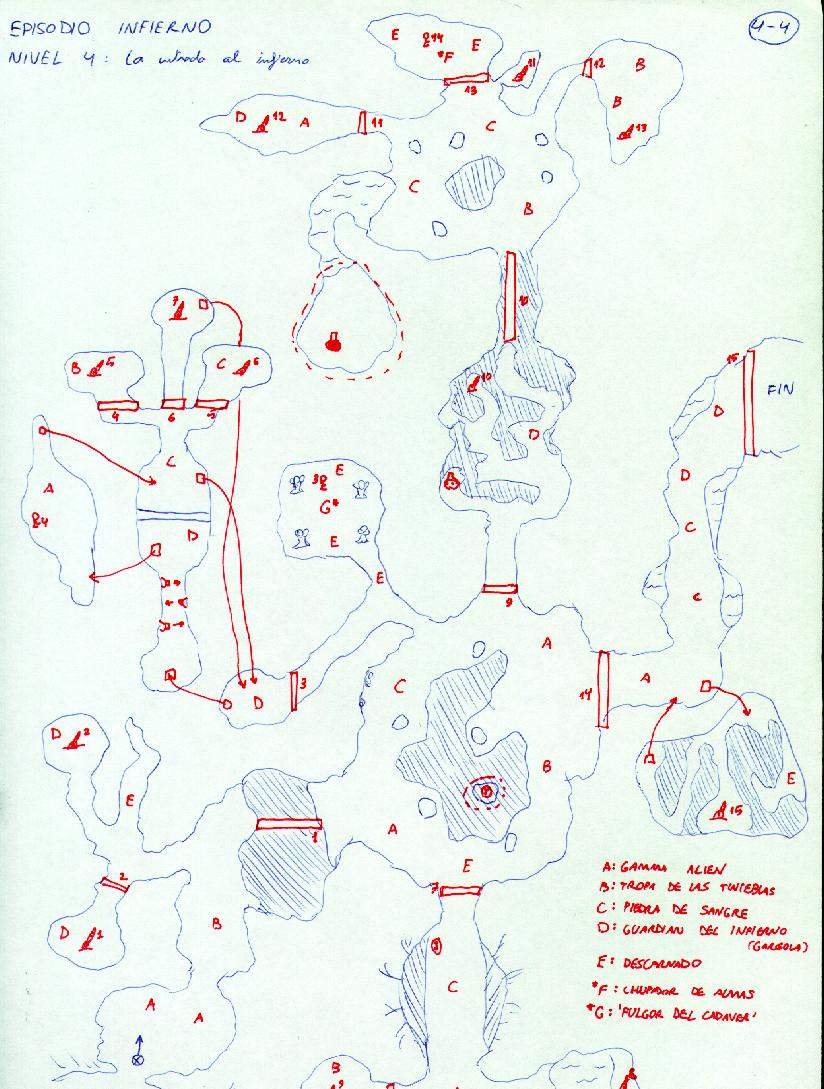 EPISODIO INFIERNO
4-4
NIVEL 4: La entrada al infierno
E 14 E
*F
13
11
12
B
B
13
D 12 A
11
C
C
B
10
7
B 5
C 6
4
6
5
10
D
15
FIN
D
D
C
C
A
4
C
D
E
3
G*
E
E
9
A
14
A
D
3
C
B
D 2
E
1
A
E
15
2
D 1
B
E
7
C
A
A
B
A: GAMMA ALIEN
B: TROPA DE LAS TINIEBLAS
C: PIEDRA DE SANGRE
D: GUARDIAN DEL INFIERNO
(GARGOLA)
E: DESCARNADO
*F: CHUPADOR DE ALMAS
*G: 'FULGOR DEL CADAVER'